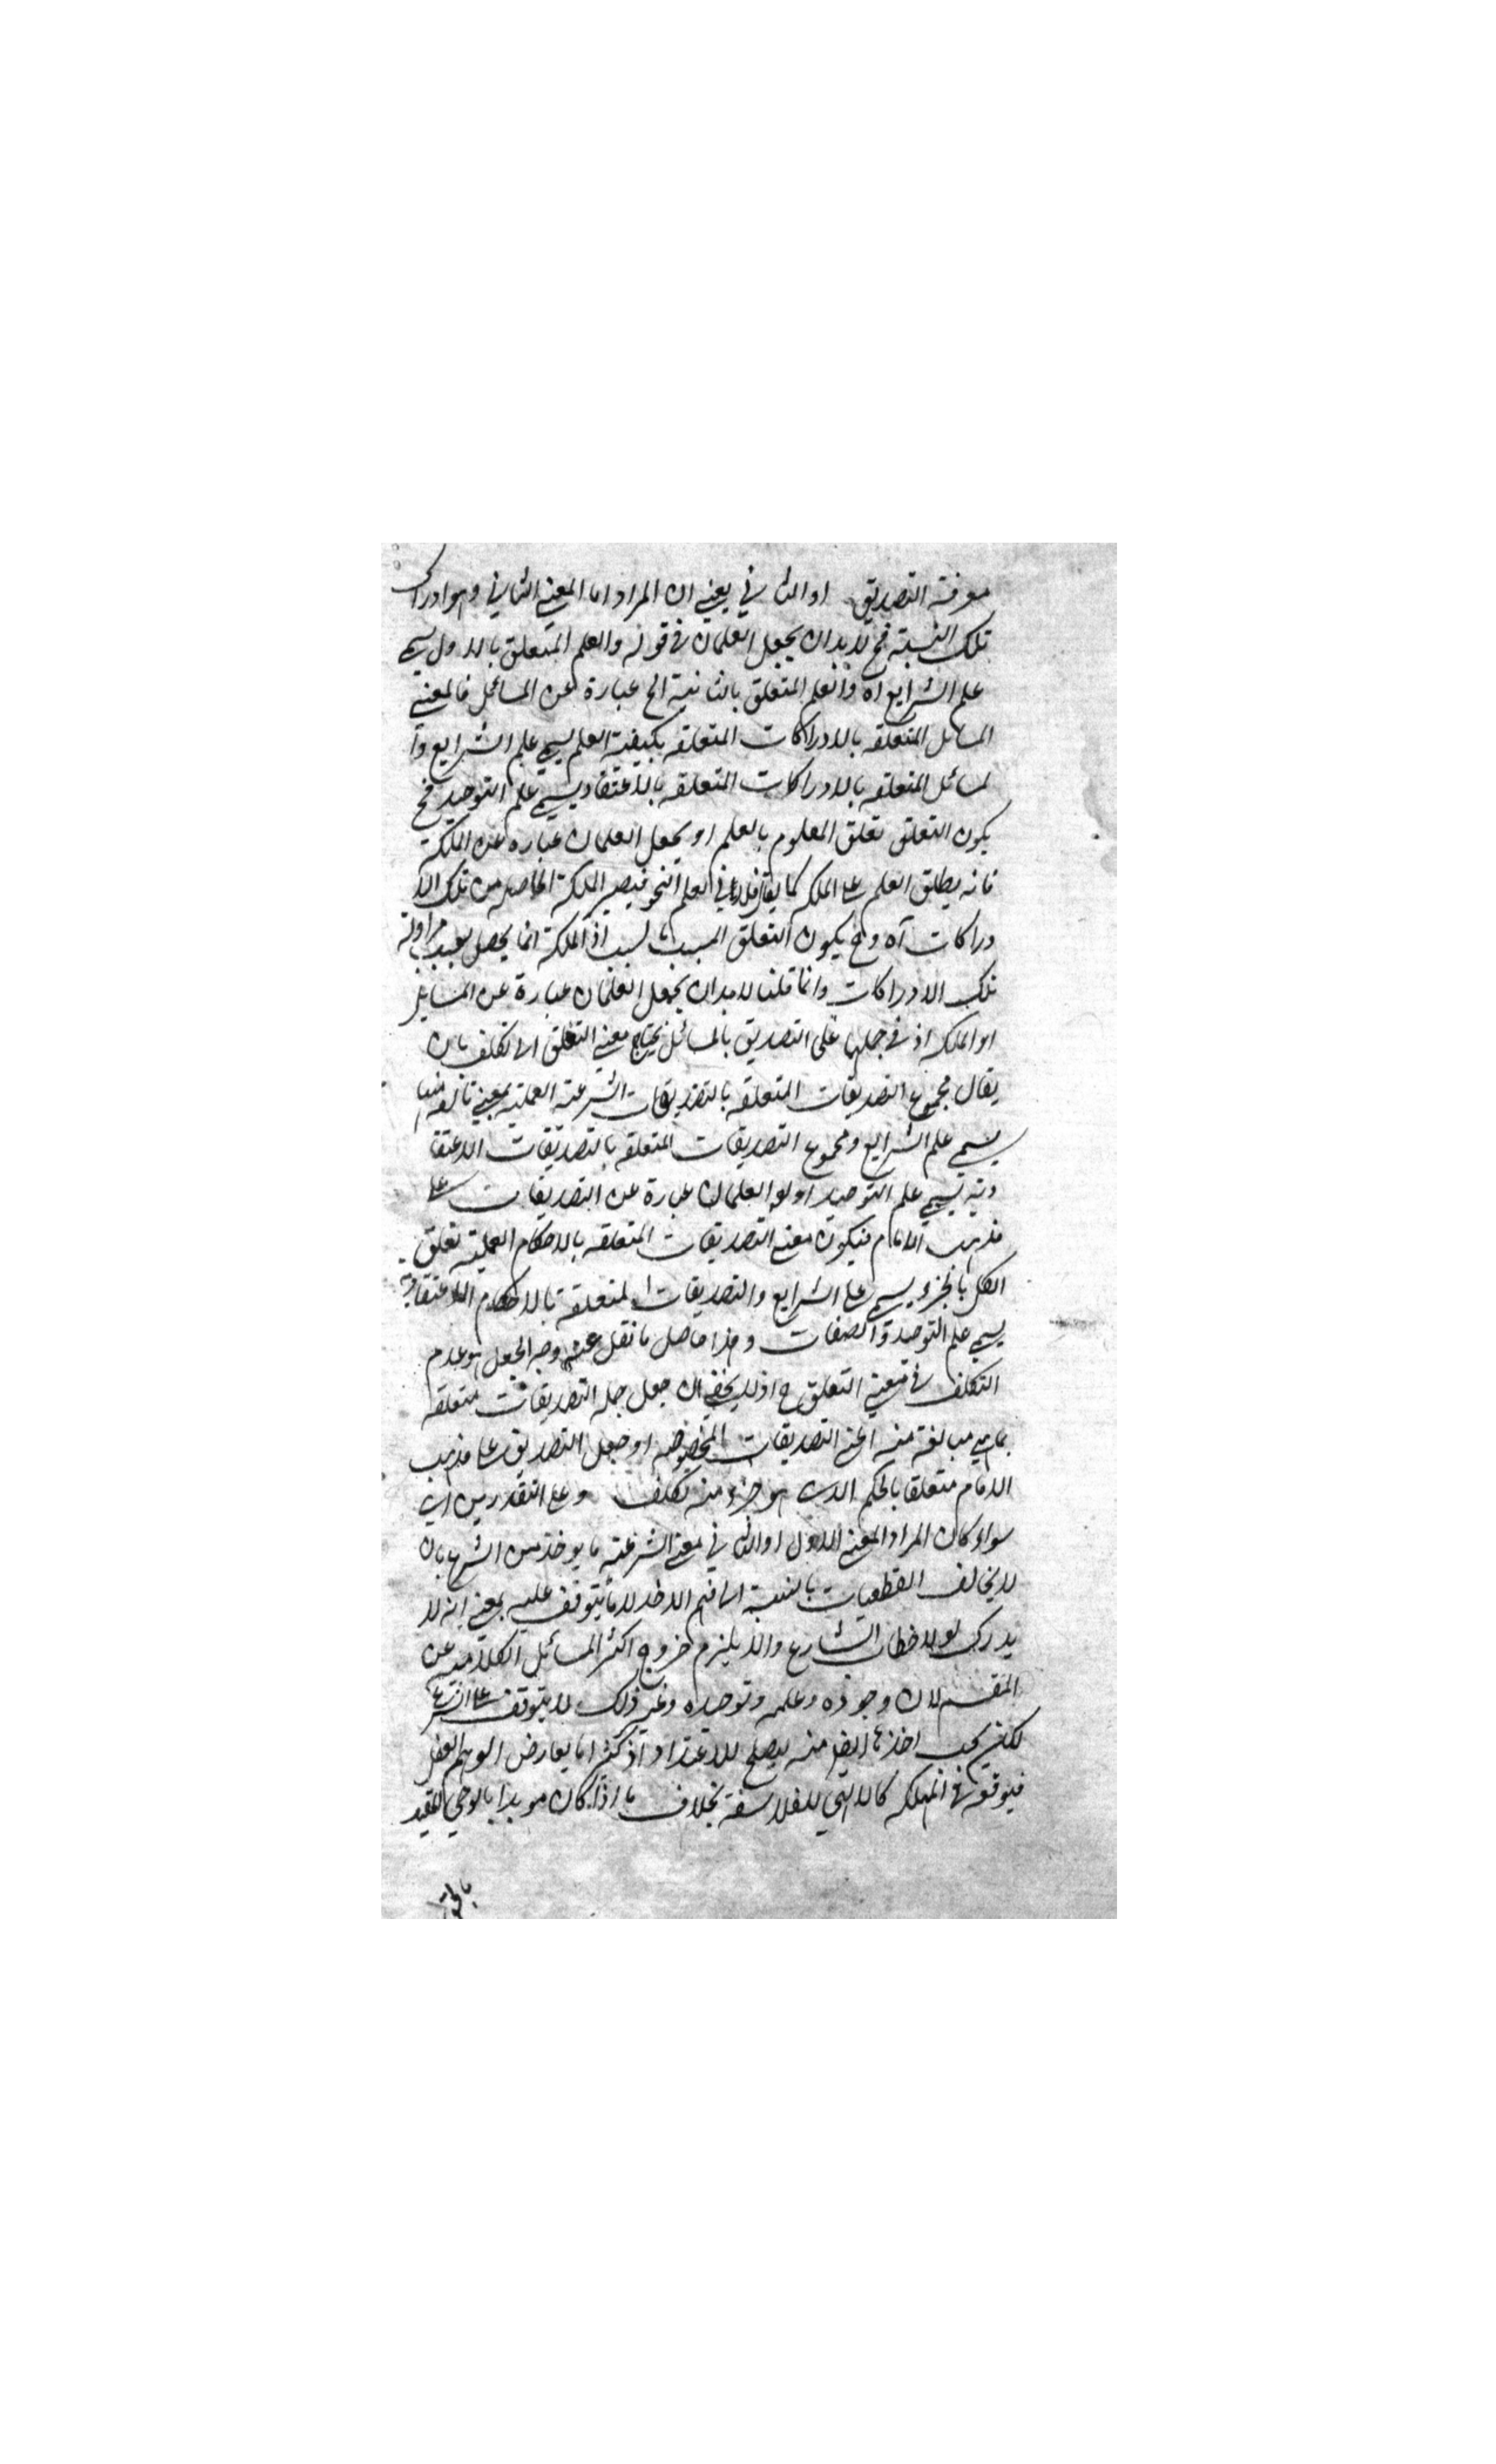 معرفة التصديق او الثاني يعني ان المراد اما المعنى الثاني وهو ادراك
تلك النسبة فح لا بد ان يجعل العلمان في قوله والعلم المتعلق بالاولى يسمى
علم الشرايع اه والعلم المتعلق بالثانية الخ عبارة عن المسائل فالمعنى
المسائل المتعلقه بالادراكات المتعلقه بكيفية العلم يسمى علم الشرايع وا
لمسائل المتعلقه بالادراكات المتعلقه بالاعتقاد يسمى علم التوحيد فح
يكون التعلق تعلق المعلوم بالعلم او يجعل العلمان عباره عن الملكة
فانه يطلق العلم على الملكه كما يقال فلان في العلم النحو فيصير الملكة الحاصله من تلك الا
دراكات آه وح يكون التعلق المسبب بسبب اذ الملكة انما يحصل بعد مزاولة
تلك الادراكات وانما قلنا لا بد ان يجعل العلمان عبارة عن المسايل
او الملكه اذ في حملها على التصديق بالمسائل يحتاج معنى التعلق الى تكلف بان
يقال مجموع التصديقات المتعلقه بالتصديقات الشرعية العملية بمعنى تالفه منها
يسمى علم الشرايع ومجموع التصديقات المتعلقه بالتصديقات الاعتقا
دية يسمى علم التوحيد او العلمان عبارة عن التصديقات على
مذهب الامام فيكون معنى التصديقات المتعلقه بالاحكام العملية تعلق
الكل بالجزء يسمى علم الشرايع والتصديقات المتعلقة بالاحكام الاعتقادية
يسمى علم التوحيد والصفات وهذا حاصل ما نقل عنه وجه الجعل هو عدم
التكلف في معنى التعلق ح اذ لا يخفى ان جعل جمله التصديقات متعلقه
بما هي مبالغة منه اعني التصديقات المخصوصه او جعل التصديق على مذهب
الامام متعلقا بالحكم الذي هو جزء منه تكلف وعلى التقديرين اي
سواء كان المراد المعنى الاول او الثاني معنى الشرعية ما يوخذ من الشرع بان
لا يخالف القطعيات بالنسبة الى فهم الاخذ لا ما يتوقف عليه بمعنى انه لا
يدرك لولا خطاب الشارع والا يلزم خروج اكثر المسائل الكلاميه عن
المقسم لان وجوده وعلمه وتوحده وغير ذلك لا يتوقف على الشرع
لكن يجب اخذها ايضا منه ليصلح للاعتداد اذ كثيرا ما يعارض الوهم العقل
فيوقعه في المهلكه كالالهي للفلاسفة بخلاف ما اذا كان مويدا بالوحي المفيد